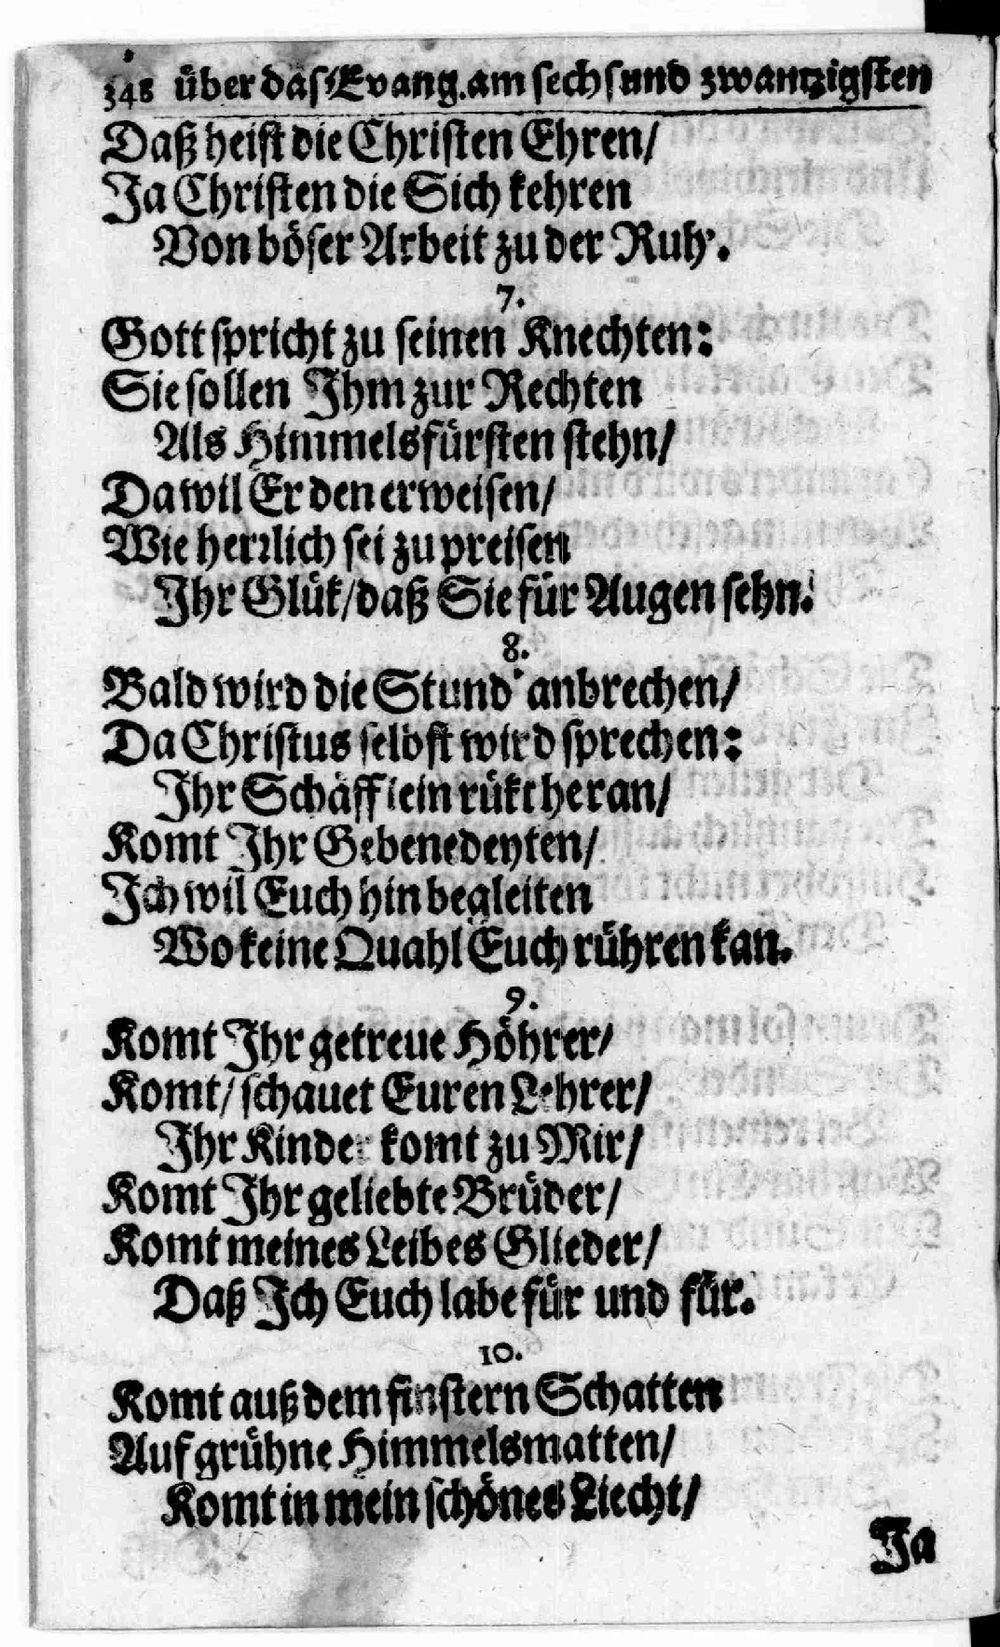 348 über das Evang. am sechs und zwantzigsten
Daß heist die Christen Ehren/
Ja Christen die Sich kehren
Von böser Arbeit zu der Ruh'.
7.
Gott spricht zu seinen Knechten:
Sie sollen Ihm zur Rechten
Als Himmelsfürsten stehn/
Da wil Er den erweisen/
Wie herrlich sei zu preisen
Ihr Glük/daß Sie für Augen sehn.
8.
Bald wird die Stund' anbrechen/
Da Christus selbst wird sprechen:
Ihr Schäfflein rükt heran/
Komt Ihr Gebenedeyten/
Ich wil Euch hin begleiten
Wo keine Quahl Euch rühren kan.
9.
Komt Ihr getreue Höhrer/
Komt/schauet Euren Lehrer/
Ihr Kinder komt zu Mir/
Komt Ihr geliebte Brüder/
Komt meines Leibes Glieder/
Daß Ich Euch labe für und für.
10.
Komt auß dem finstern Schatten
Auf grühne Himmelsmatten/
Komt in mein schönes Liecht/
Ja